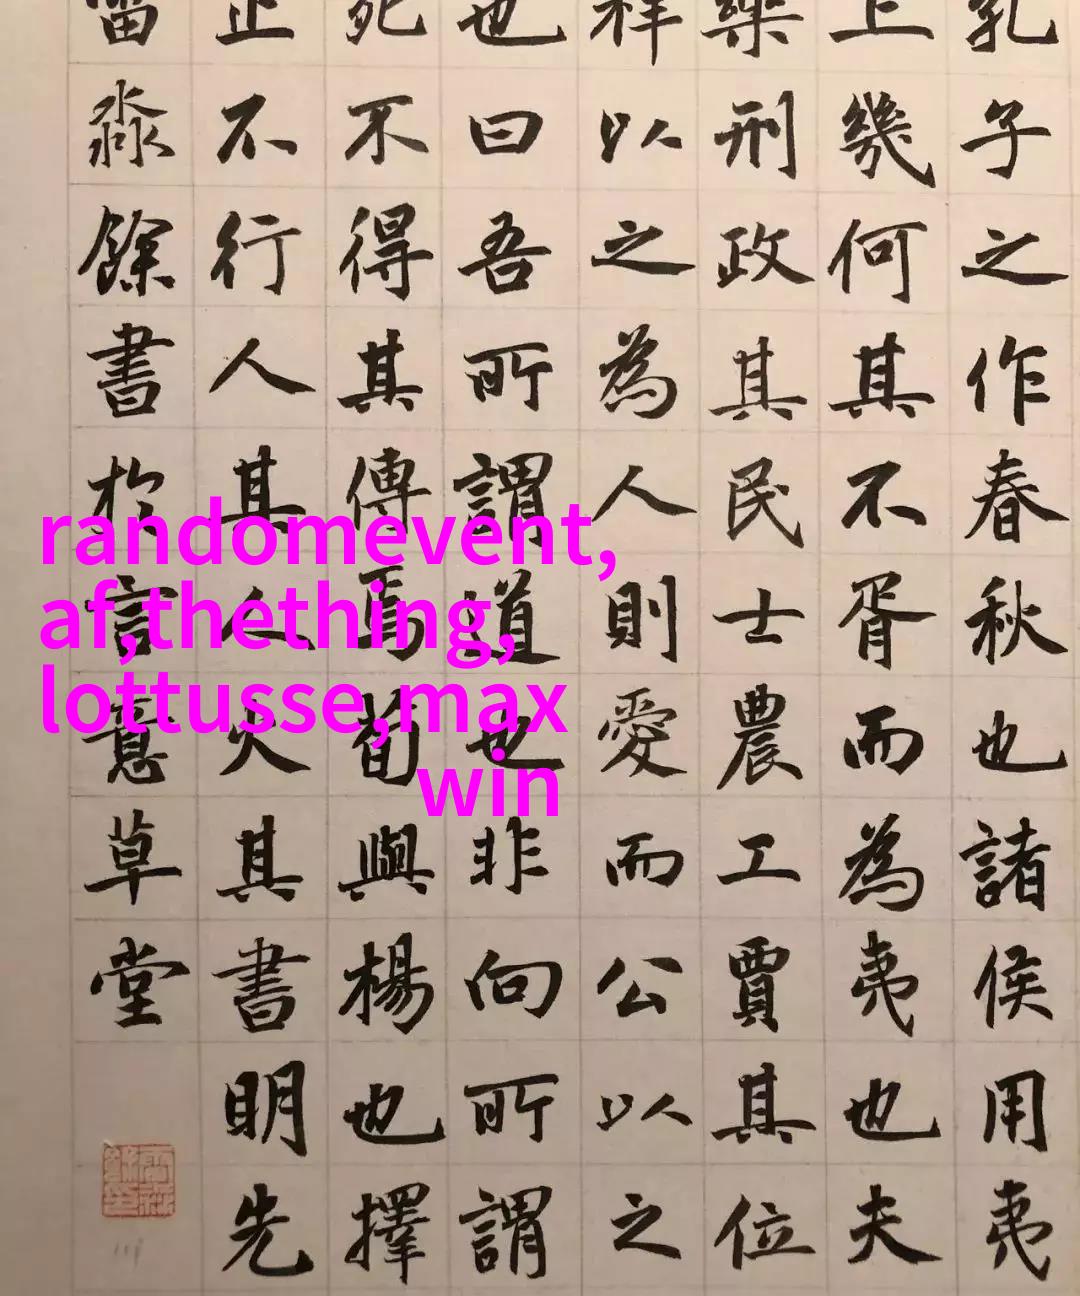 孔子之作春秋也諸侯用夷
上幾何其不胥而為夷也夫
樂刑政其民士農工賈其位
祥以之為人則愛而公以之
也曰吾所謂道也非向所謂
死不得其傳焉荀與楊也擇
止不行人其人火其書明先
淼餘書於言意草堂
randomevent,
af,thething,
lottusse,max
win